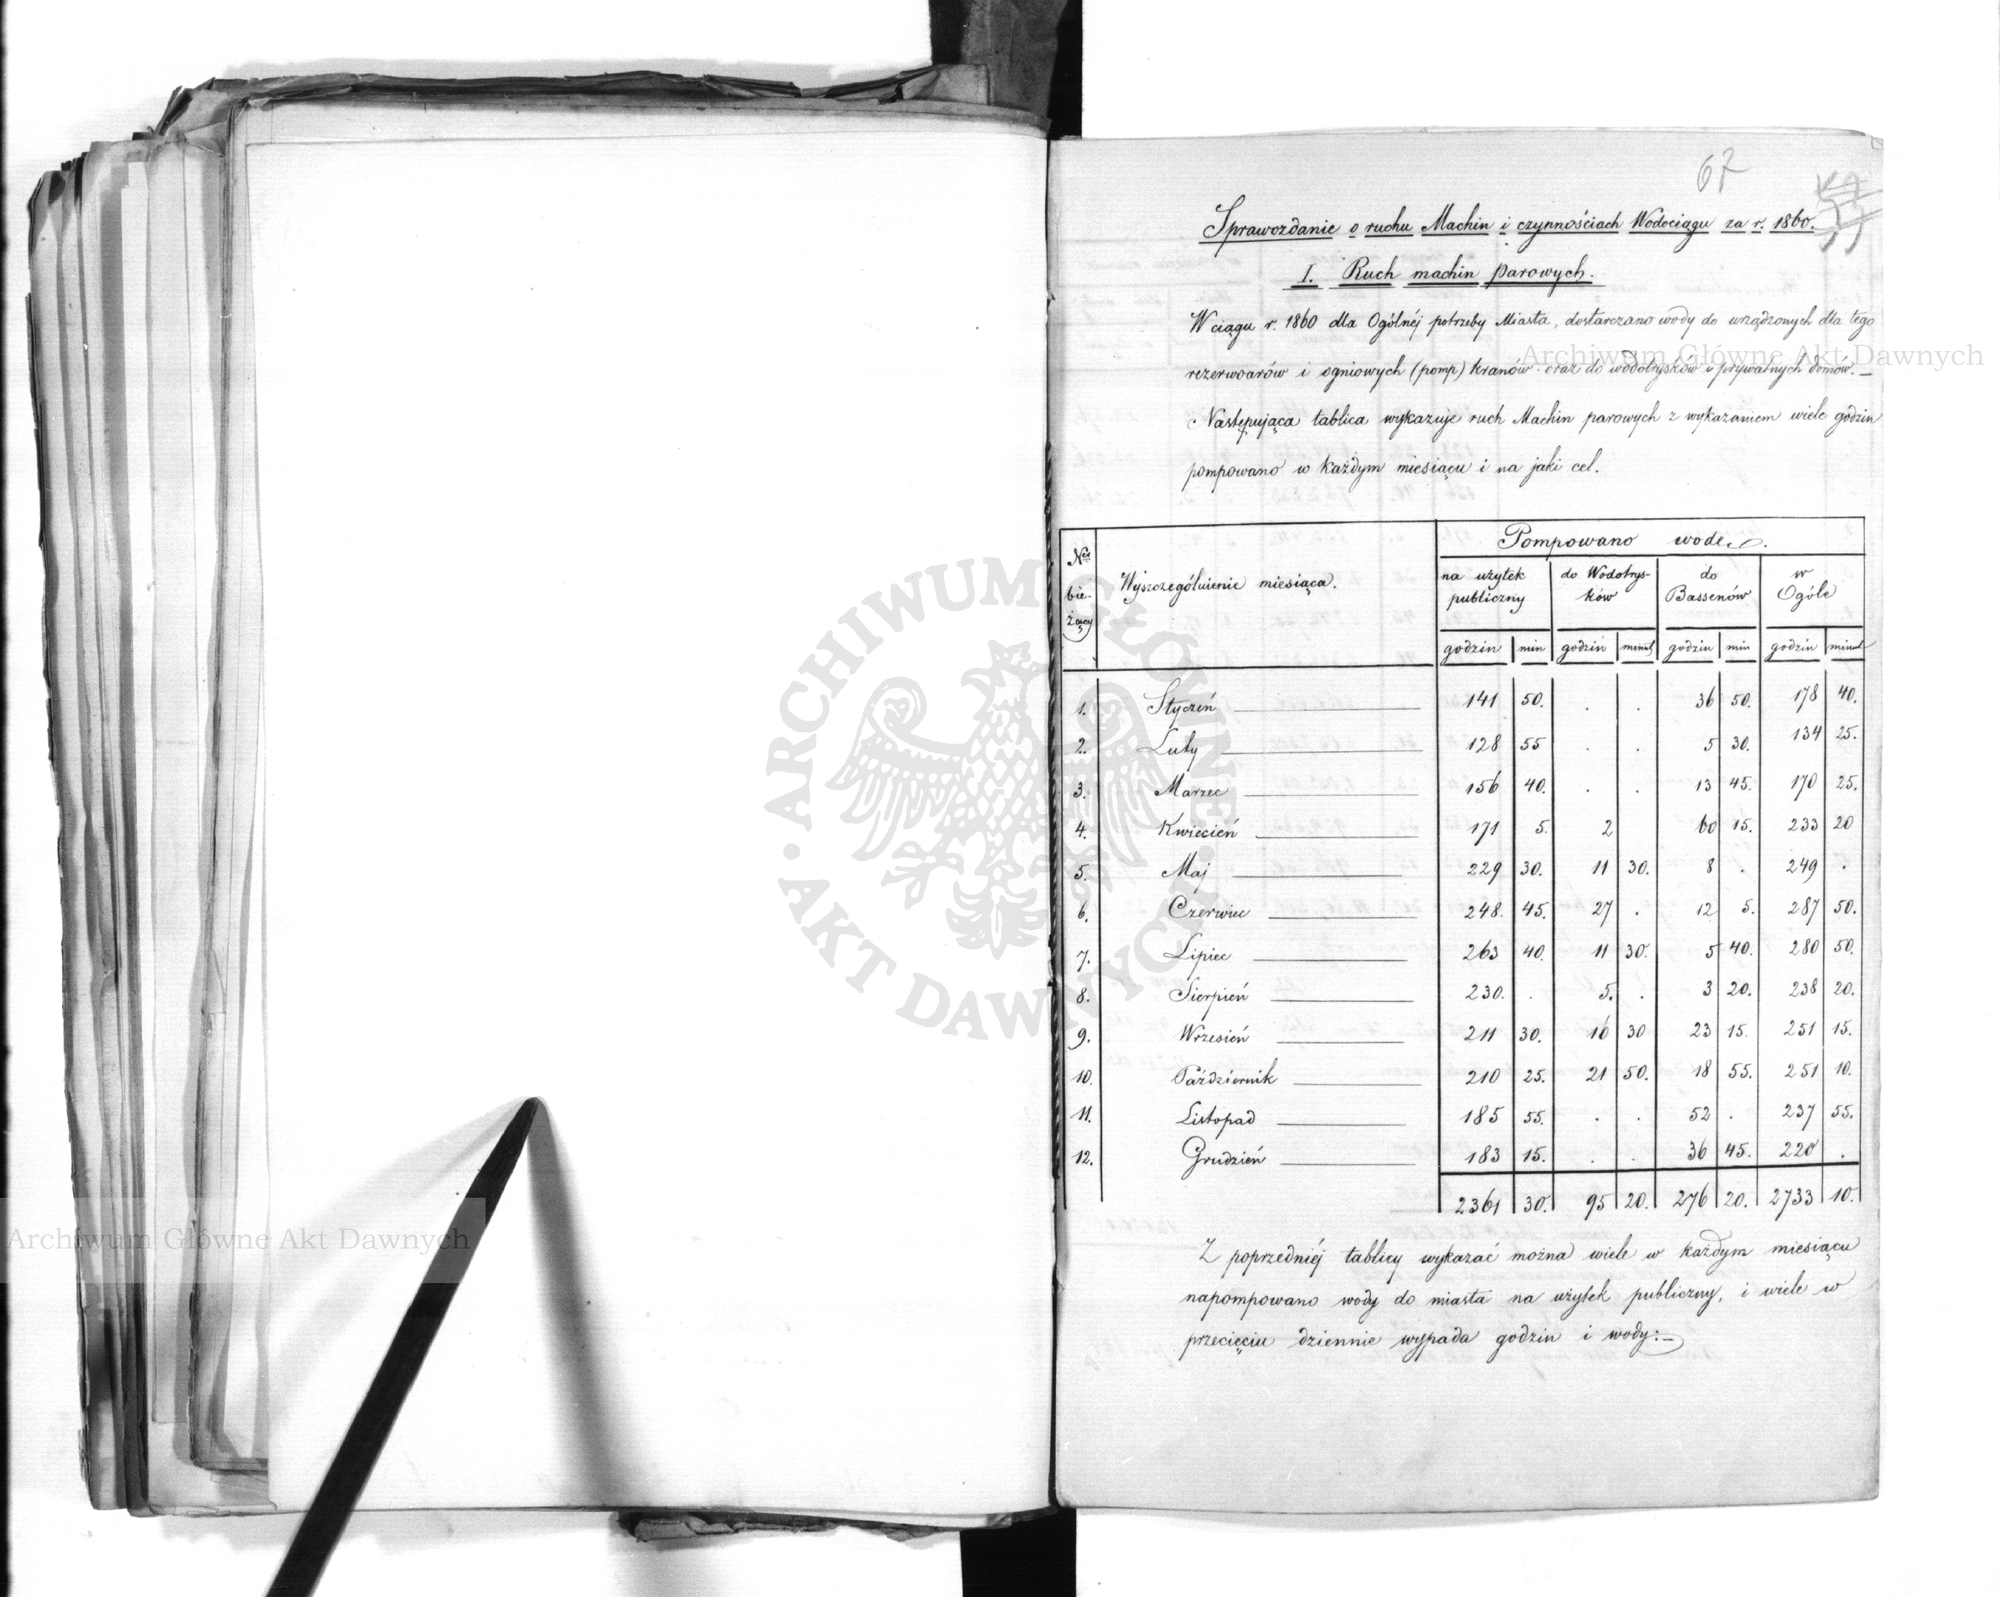 67
Sprawozdanie o ruchu Machin i czynnościach Wodociągu za r. 1860.
I. Ruch machin parowych.
W ciągu r. 1860 dla Ogólnéj potrzeby Miasta, dostarczano wody do urządzonych dla tego
rezerwoarów i ogniowych (pomp) kranów oraz do wodotrysków i prywatnych domów. —
Następująca tablica wykazuje ruch Machin parowych z wykazaniem wiele godzin
pompowano w każdym miesiącu i na jaki cel.
Nr bieżący | Wyszczególnienie miesiąca. | Pompowano wodę.
na użytek publiczny | do Wodotrysków | do Bassenów | w Ogóle
godzin | min | godzin | minut | godzin | min | godzin | minut
1. Styczeń 141 50. . . 36 50. 178 40.
2. Luty 128 55 . . 5 30. 134 25.
3. Marzec 156 40. . . 13 45. 170 25.
4. Kwiecień 171 5. 2 60 15. 233 20
5. Maj 229 30. 11 30. 8 . 249 .
6. Czerwiec 248. 45. 27 . 12 5. 287 50.
7. Lipiec 263 40. 11 30. 5 40. 280 50.
8. Sierpień 230. . 5. . 3 20. 238 20.
9. Wrzesień 211 30. 16 30 23 15. 251 15.
10. Październik 210 25. 21 50. 18 55. 251 10.
11. Listopad 185 55. . . 52 . 237 55.
12. Grudzień 183 15. . . 36 45. 220 .
2361 30. 95 20. 276 20. 2733 10.
Z poprzedniéj tablicy wykazać można wiele w każdym miesiącu
napompowano wody do miasta na użytek publiczny, i wiele w
przecięciu dziennie wypada godzin i wody: —
Archiwum Główne Akt Dawnych
Archiwum Główne Akt Dawnych
ARCHIWUM GŁÓWNE · AKT DAWNYCH ·